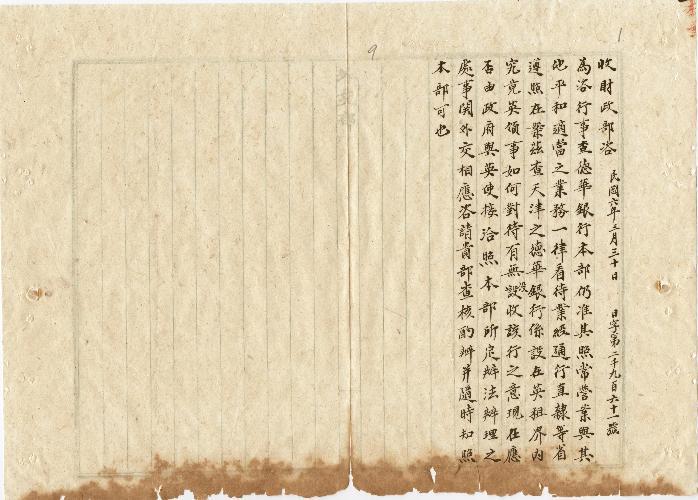 收財政部咨 民國六年三月三十日 日字第二千九百六十一號
為咨行事查德華銀行本部仍准其照常營業與其
他平和適當之業務一律看待業經通行直隸等省
遵照在案茲查天津之德華銀行係設在英租界內
究竟英領事如何對待有無設没收該行之意現在應
否由政府與英使接洽照本部所定辦法辦理之
處事関外交相應咨請貴部查核酌辦并隨時知照
本部可也
9
1